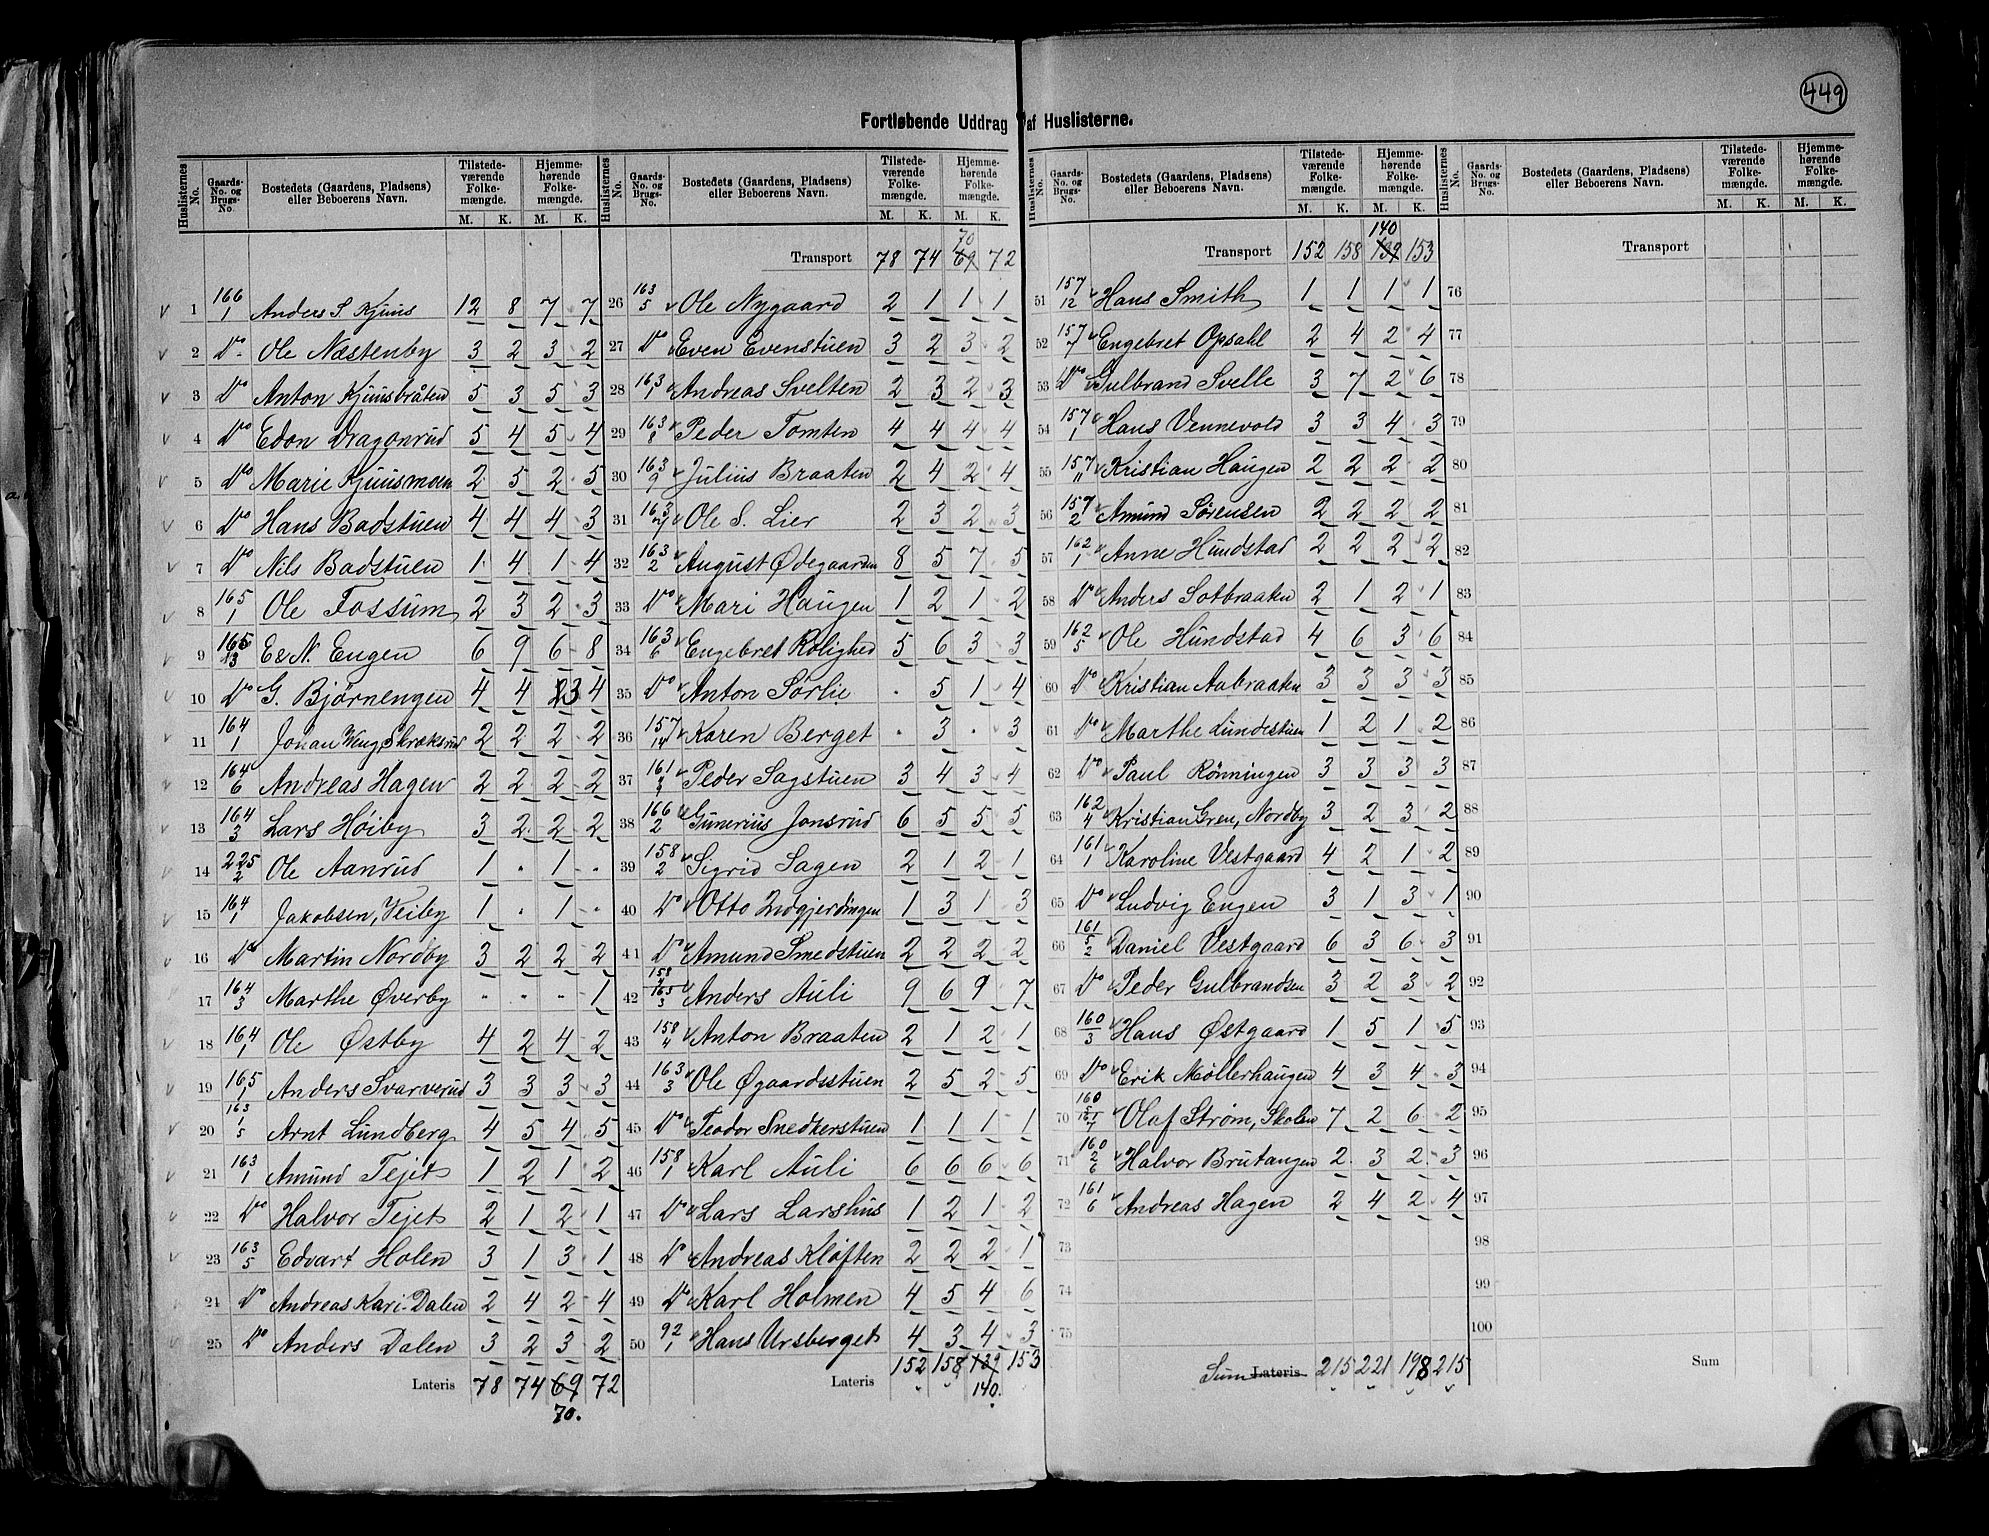 449
Fortløbende Uddrag af Huslisterne.
Huslisternes No. Gaards-No. og Brugs-No. Bostedets (Gaardens, Pladsens) eller Beboerens Navn. Tilstedeværende Folkemængde. M. K. Hjemmehørende Folkemængde. M. K.
1 166/1 Anders S. Kjuus 12 8 7 7
2 Do Ole Næstenby 3 2 3 2
3 Do Anton Kjuusbråten 5 3 5 3
4 Do Edon Dragonrud 5 4 5 4
5 Do Marie Kjuusmoen 2 5 2 5
6 Do Hans Badstuen 4 4 4 3
7 Do Nils Badstuen 1 4 1 4
8 165/1 Ole Fossum 2 3 2 3
9 165 E & N. Engen 6 9 6 8
10 Do G. Bjørnengen 4 4 3 4
11 164/1 Johan Weng, Skræksrud 2 2 2 2
12 164/6 Andreas Hagen 2 2 2 2
13 164/3 Lars Høiby 3 2 2 2
14 225/2 Ole Aanrud 1 . 1 .
15 164/1 Jakobsen, Veiby 1 . 1 .
16 Do Martin Nordby 3 2 2 2
17 164/3 Marthe Øverby . . . 1
18 164/1 Ole Østby 4 2 4 2
19 165/1 Anders Svarverud 3 3 3 3
20 163 1/5 Arnt Lundberg 4 5 4 5
21 163/1 Amund Tejet 1 2 1 2
22 Do Halvor Tejet 2 1 2 1
23 163/5 Edvart Holen 3 1 3 1
24 Do Andreas Kari-Dalen 2 4 2 4
25 Do Anders Dalen 3 2 3 2
Lateris 78 74 69 72
70.
Huslisternes No. Gaards-No. og Brugs-No. Bostedets (Gaardens, Pladsens) eller Beboerens Navn. Tilstedeværende Folkemængde. M. K. Hjemmehørende Folkemængde. M. K.
70
Transport 78 74 69 72
26 163/5 Ole Nygaard 2 1 1 1
27 Do Even Evenstuen 3 2 3 2
28 163/1 Andreas Svelten 2 3 2 3
29 163/8 Peder Tomten 4 4 4 4
30 163/9 Julius Braaten 2 4 2 4
31 163/4 Ole S. Lier 2 3 2 3
32 163/2 August Ødegaarden 8 5 7 5
33 Do Mari Haugen 1 2 1 2
34 163/6 Engebret Rolighed 5 6 3 3
35 Do Anton Sørlie . 5 1 4
36 157/14 Karen Berget . 3 . 3
37 161 Peder Sagstuen 3 4 3 4
38 166/2 Gunerius Jonsrud 6 5 5 5
39 158/2 Sigrid Sagen 2 1 2 1
40 Do Otto Indgjerdingen 1 3 1 3
41 Do Amund Smedstuen 2 2 2 2
42 158 165/3 Anders Auli 9 6 9 7
43 158/4 Anton Braaten 2 1 2 1
44 163/3 Ole Øgaardsstuen 2 5 2 5
45 Do Teodor Snedkerstuen 1 1 1 1
46 158/1 Karl Auli 6 6 6 6
47 Do Lars Larshus 1 2 1 2
48 Do Andreas Kløften 2 2 2 1
49 Do Karl Holmen 4 5 4 6
50 92/1 Hans Ursberget 4 3 4 3
Lateris 152 158 139 153
140.
Huslisternes No. Gaards-No. og Brugs-No. Bostedets (Gaardens, Pladsens) eller Beboerens Navn. Tilstedeværende Folkemængde. M. K. Hjemmehørende Folkemængde. M. K.
140
Transport 152 158 139 153
51 157/12 Hans Smith 1 1 1 1
52 157/7 Engebret Opsahl 2 4 2 4
53 Do Gulbrand Svelle 3 7 2 6
54 157/1 Hans Vennevold 3 3 4 3
55 157/11 Kristian Haugen 2 2 2 2
56 157/2 Amund Sørensen 2 2 2 2
57 162/1 Anne Hundstad 2 2 2 2
58 Do Anders Sotbraaten 2 1 2 1
59 162/5 Ole Hundstad 4 6 3 6
60 Do Kristian Aabraaten 3 3 3 3
61 Do Marthe Lundestuen 1 2 1 2
62 Do Paul Rønningen 3 3 3 3
63 162/4 Kristian Gren, Nordby 3 2 3 2
64 161/1 Karoline Vestgaard 4 2 1 2
65 Do Ludvig Engen 3 1 3 1
66 161 5/2 Daniel Vestgaard 6 3 6 3
67 Do Peder Gulbrandsen 3 2 3 2
68 160/3 Hans Østgaard 1 5 1 5
69 Do Erik Møllerhaugen 4 3 4 3
70 160/5 161/7 Olaf Strøm, Skolen 7 2 6 2
71 160 2/6 Halvor Brutangen 2 3 2 3
72 161/6 Andreas Hagen 2 4 2 4
73
74
75
Sum Lateris 215 221 198 215
Huslisternes No. Gaards-No. og Brugs-No. Bostedets (Gaardens, Pladsens) eller Beboerens Navn. Tilstedeværende Folkemængde. M. K. Hjemmehørende Folkemængde. M. K.
Transport
76
77
78
79
80
81
82
83
84
85
86
87
88
89
90
91
92
93
94
95
96
97
98
99
100
Sum